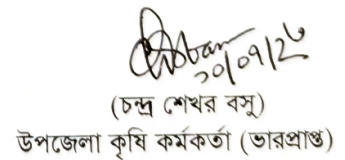 ২০/০১/২৬
(চন্দ্র শেখর বসু)
উপজেলা কৃষি কর্মকর্তা (ভারপ্রাপ্ত)